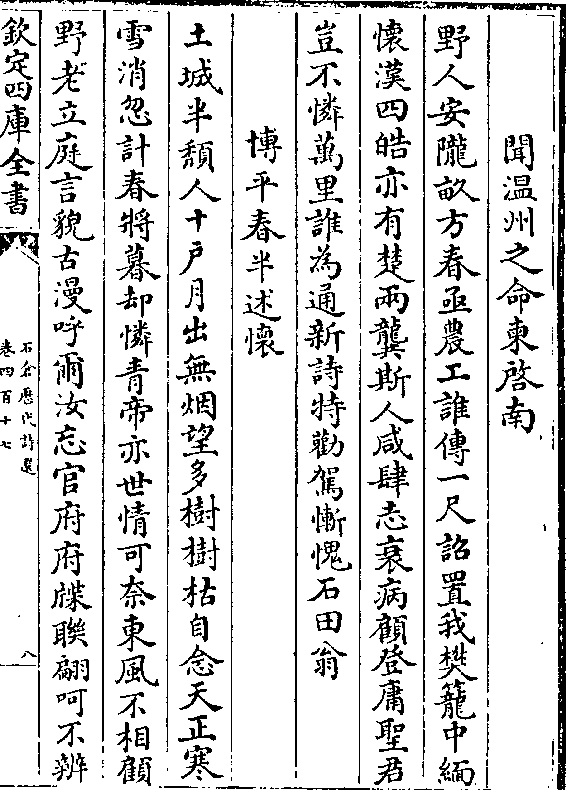 聞温州之命柬啓南
野人安隴畝方春亟農工誰傳一尺詔置我樊籠中緬
懷漢四皓亦有楚兩龔斯人咸肆志衰病顧登庸聖君
豈不憐萬里誰為通新詩特勸駕慚愧石田翁
博平春半述懷
土城半頽人十戶月出無烟望多樹樹枯自念天正寒
雪消忽計春將暮却憐青帝亦世情可奈東風不相顧
野老立庭言貌古漫呼爾汝忘官府府牒聯翩呵不辨
欽定四庫全書
石倉歷代詩選
卷四百十七
八